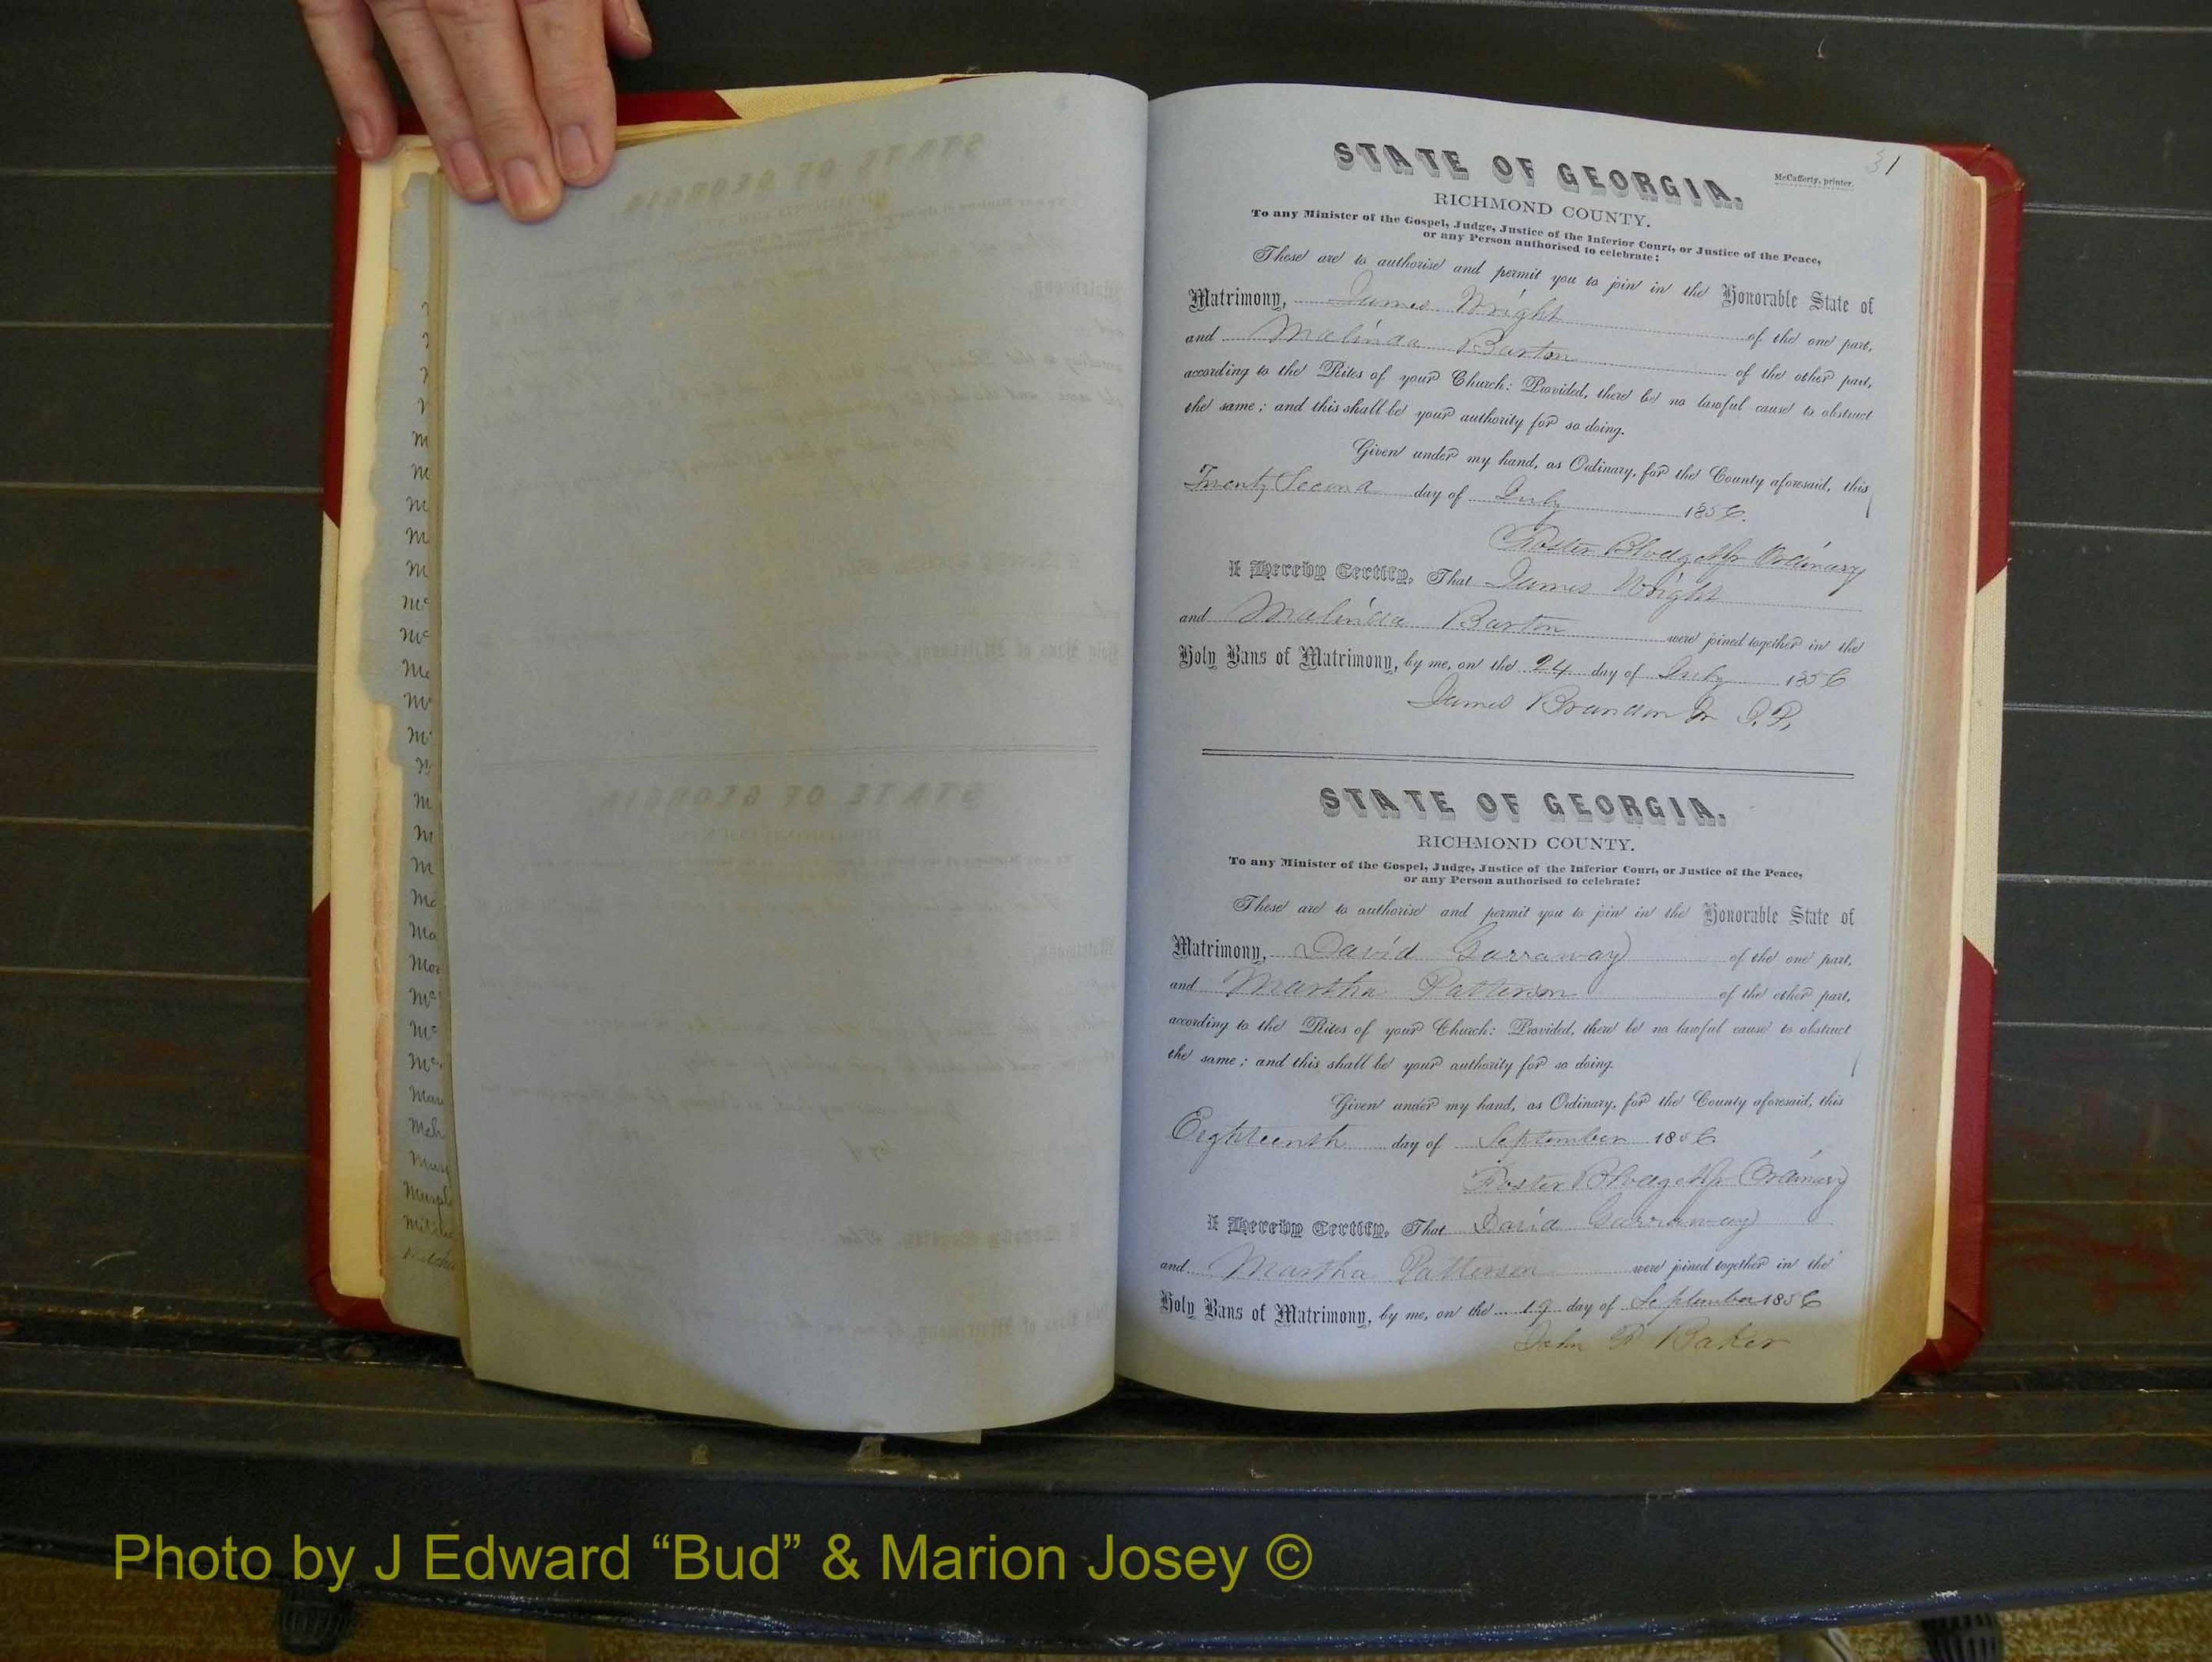 31
STATE OF GEORGIA.
McCafferty, printer.
RICHMOND COUNTY.
To any Minister of the Gospel, Judge, Justice of the Inferior Court, or Justice of the Peace,
or any Person authorised to celebrate:
These are to authorise and permit you to join in the Honorable State of
Matrimony, James Wright of the one part,
and Malinda Barton of the other part,
according to the Rites of your Church: Provided, there be no lawful cause to obstruct
the same; and this shall be your authority for so doing.
Given under my hand, as Ordinary, for the County aforesaid, this
Twenty Second day of July 1856.
Foster Blodget Jr Ordinary
I Hereby Certify, That James Wright
and Malinda Barton were joined together in the
Holy Bans of Matrimony, by me, on the 24 day of July 1856
James Brandon Jr J.P.
STATE OF GEORGIA.
RICHMOND COUNTY.
To any Minister of the Gospel, Judge, Justice of the Inferior Court, or Justice of the Peace,
or any Person authorised to celebrate:
These are to authorise and permit you to join in the Honorable State of
Matrimony, David Garraway of the one part,
and Martha Patterson of the other part,
according to the Rites of your Church: Provided, there be no lawful cause to obstruct
the same; and this shall be your authority for so doing.
Given under my hand, as Ordinary, for the County aforesaid, this
Eighteenth day of September 1856
Foster Blodget Jr Ordinary
I Hereby Certify, That David Garraway
and Martha Patterson were joined together in the
Holy Bans of Matrimony, by me, on the 19 day of September 1856
John P Baker
Photo by J Edward “Bud” & Marion Josey ©